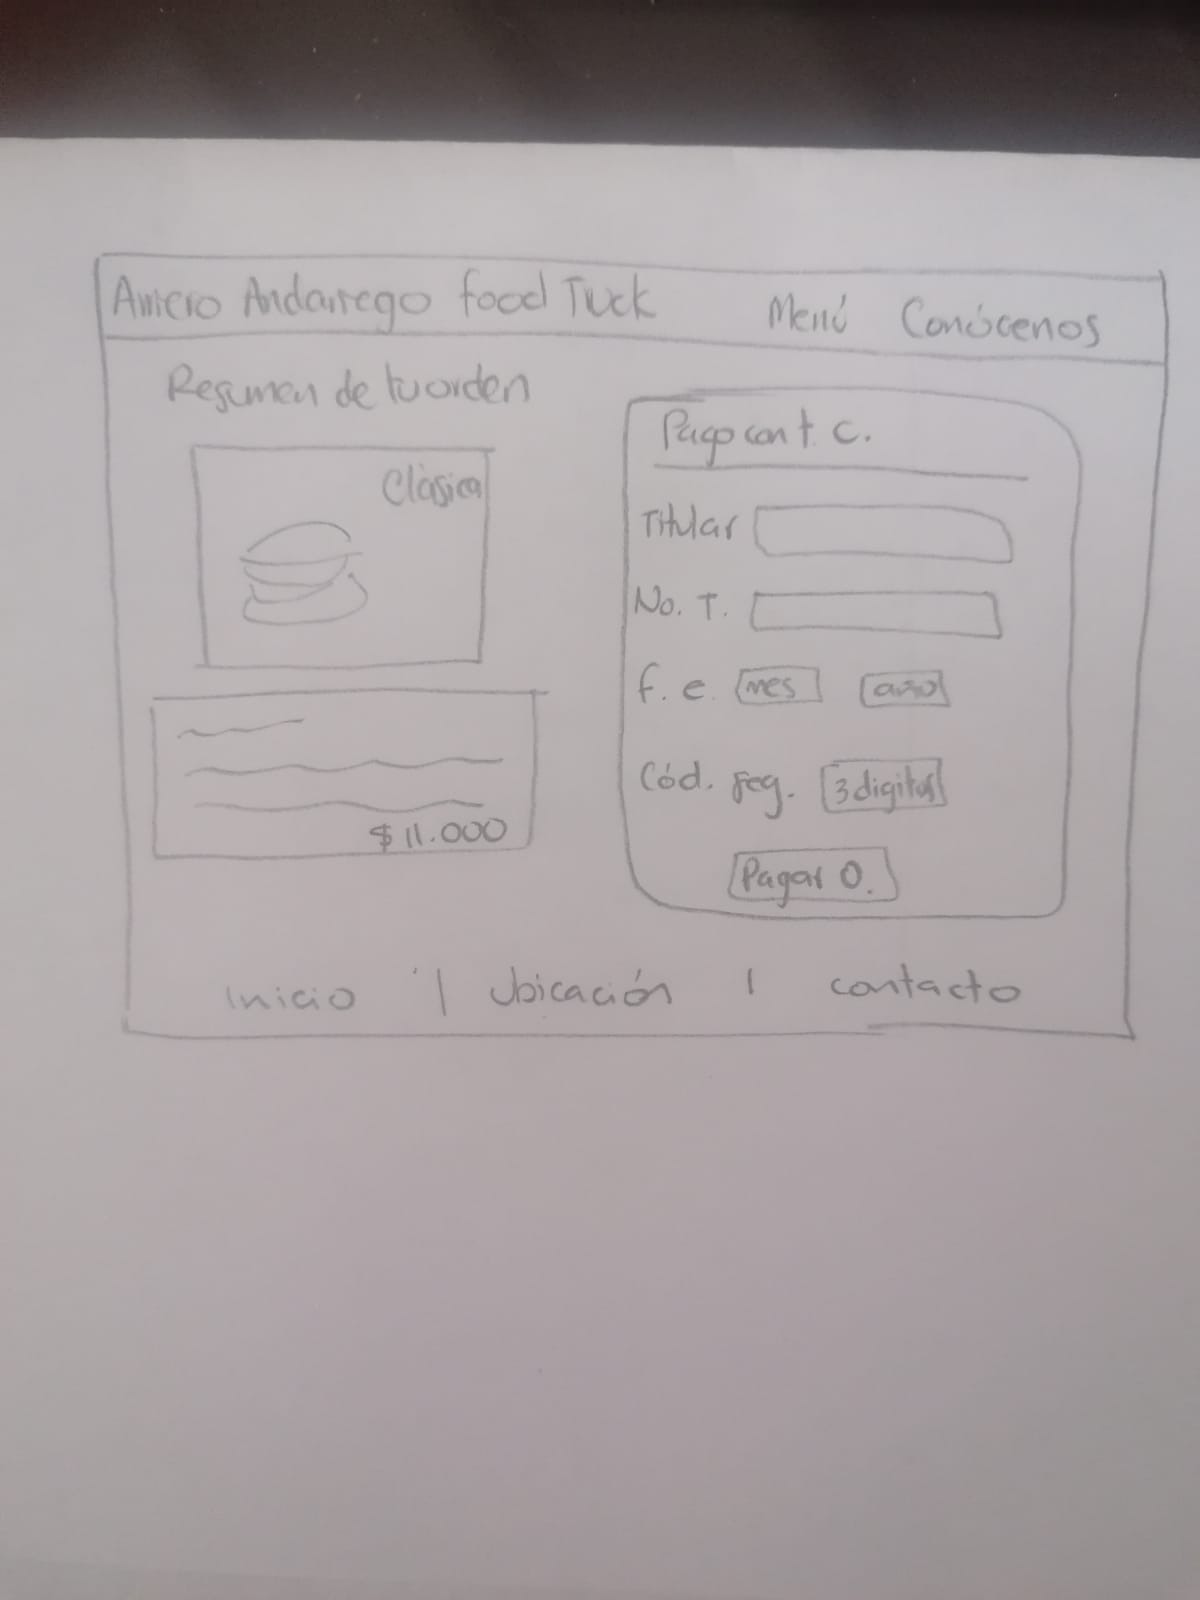 Amero Andariego food Tuck Menú Conócenos
Resumen de tu orden
Clásica
$ 11.000
Pago con t. C.
Titular
No. T.
f. e. mes año
Cód. seg. 3 digitos
Pagar O.
Inicio | Ubicación | contacto